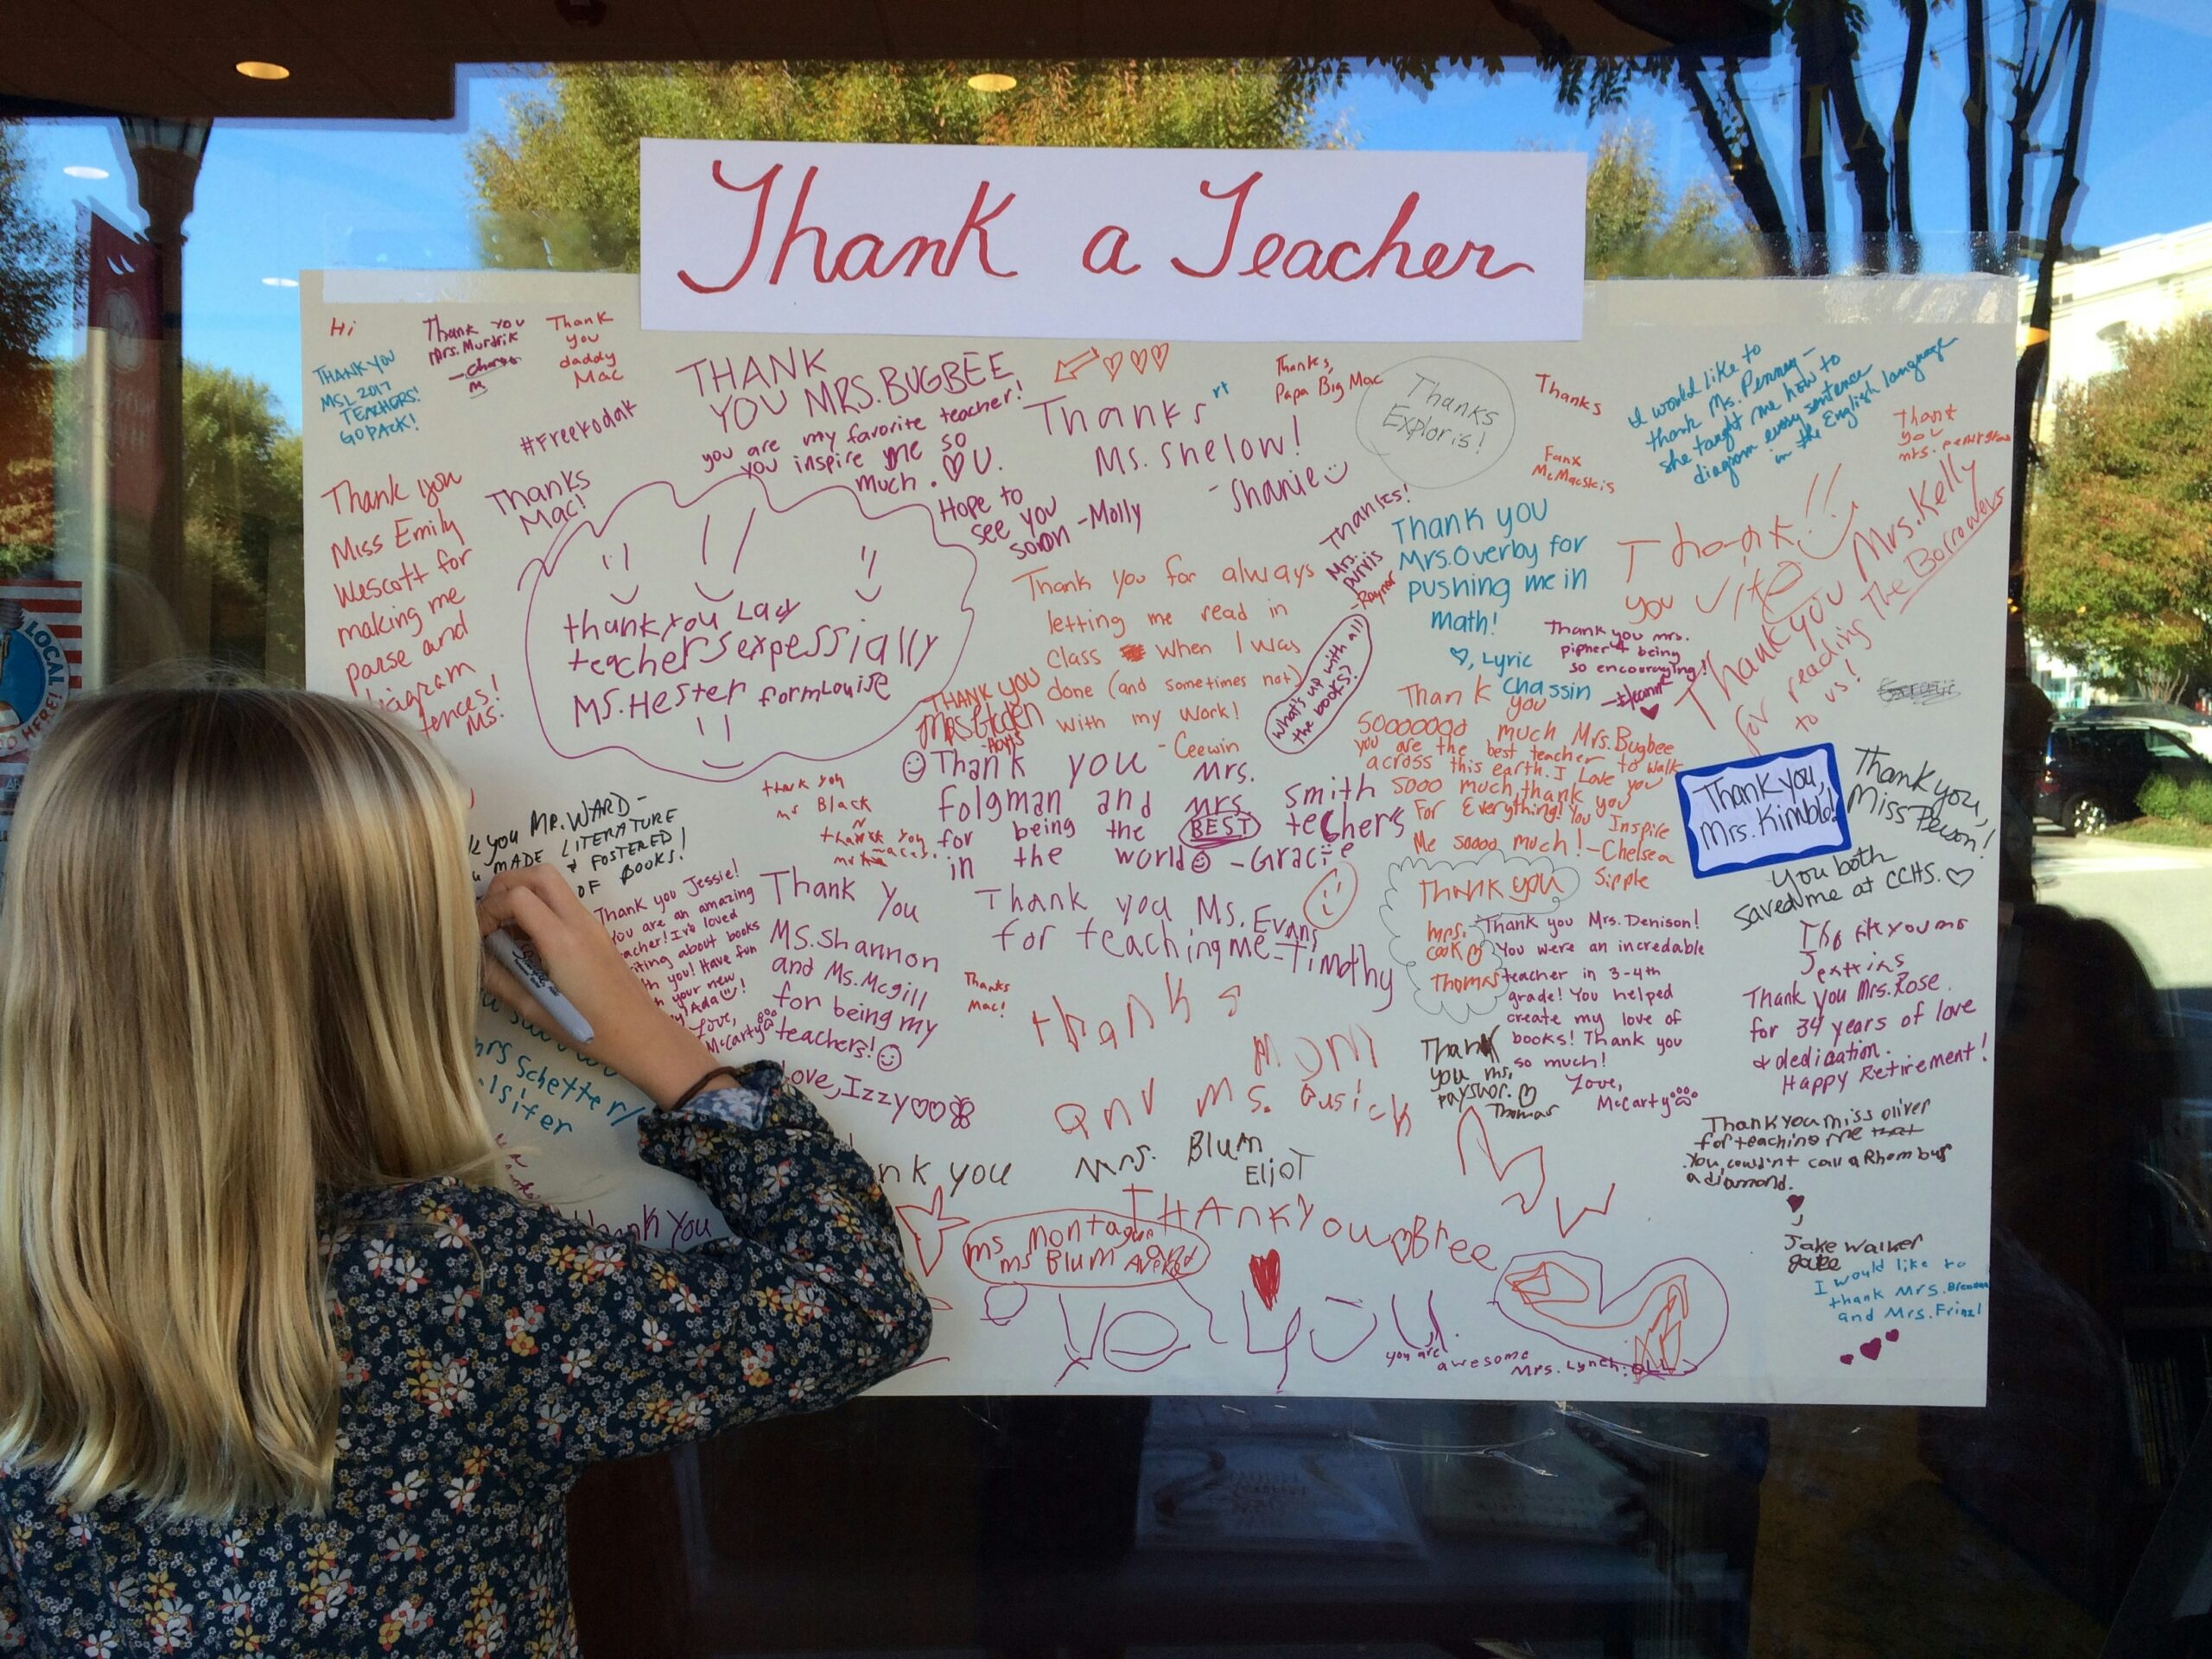 Thank a Teacher
Hi
THANK YOU
MSL 2017
TEACHERS!
GO PACK!
Thank you
Mrs. Murdrik
Thank
you
daddy
Mac
#FreeKodak
Thanks
Mac!
Thank you
Miss Emily
Wescott for
making me
parse and
THANK
YOU MRS. BUGBEE
you are my favorite teacher!
you inspire me so
much. ♡ U.
Hope to
see you
soon -Molly
Thanks
Ms. Shelow!
-Shanie
Thanks,
Papa Big Mac
Thanks
Exploris!
Thanks
I would like to
thank Ms. Penney-
she taught me how to
diagram every sentence
in the English language
Thank
you
mrs.
thankyou Lady
teachers expessially
MS. Hester formLouise
Thank you for always
letting me read in
class when I was
done (and sometimes not)
with my work!
-Ceewin
Thanks!
Mrs.
purvis
-Raynor
What's up with all
the books?
Thank you
Mrs. Overby for
pushing me in
math!
♡, Lyric
Chassin
Thank you mrs.
being
so encouraging!
Thank!!
you
Thank you Mrs. Kelly
for reading The Borrowers
to us!
THANK YOU
Thank you Mrs.
Folgman and Mrs. Smith
for being the BEST techers
in the world -Gracie
Thank
you
much Mrs. Bugbee
you are the best teacher to walk
across this earth. I Love you
sooo much, thank you
For Everything! You Inspire
Me soooo much! -Chelsea
Sipple
Thank you,
Mrs. Kimble!
Thank you,
You both
saved me at CCHS. ♡
you MR. WARD-
MADE LITERATURE
+ FOSTERED
OF BOOKS!
thank you
mr Black
thank you
Thank you Jessie!
You are an amazing
I've loved
about books
you! Have fun
your new
Ada
Love,
McCarty
Thank You
MS. Shannon
and Ms. Mcgill
for being my
teachers!
Love, Izzy♡♡
Thanks
Mac!
Thank you Ms. Evans
for teaching me - Timothy
THANK you
mrs.
cook
Thomas
Thank you Mrs. Denison!
You were an incredable
teacher in 3-4th
grade! You helped
create my love of
books! Thank you
so much!
Love,
McCarty
thanks
mom
and Ms. Gusick
Thank
you ms.
Thomas
Thank you Mrs. Rose
for 34 years of love
+ dedication.
Happy Retirement!
Thank you miss oliver
for teaching me that
You couldn't call a Rhombus
a diamond.
Jake Walker
I would like to
thank Mrs.
and Mrs.
mrs Schetter/
thank You
you
Mrs. Blum
Eliot
THANKYou Bree
ms montague
ms Blum
you
you are awesome
Mrs. Lynch
LOCAL
HERE!